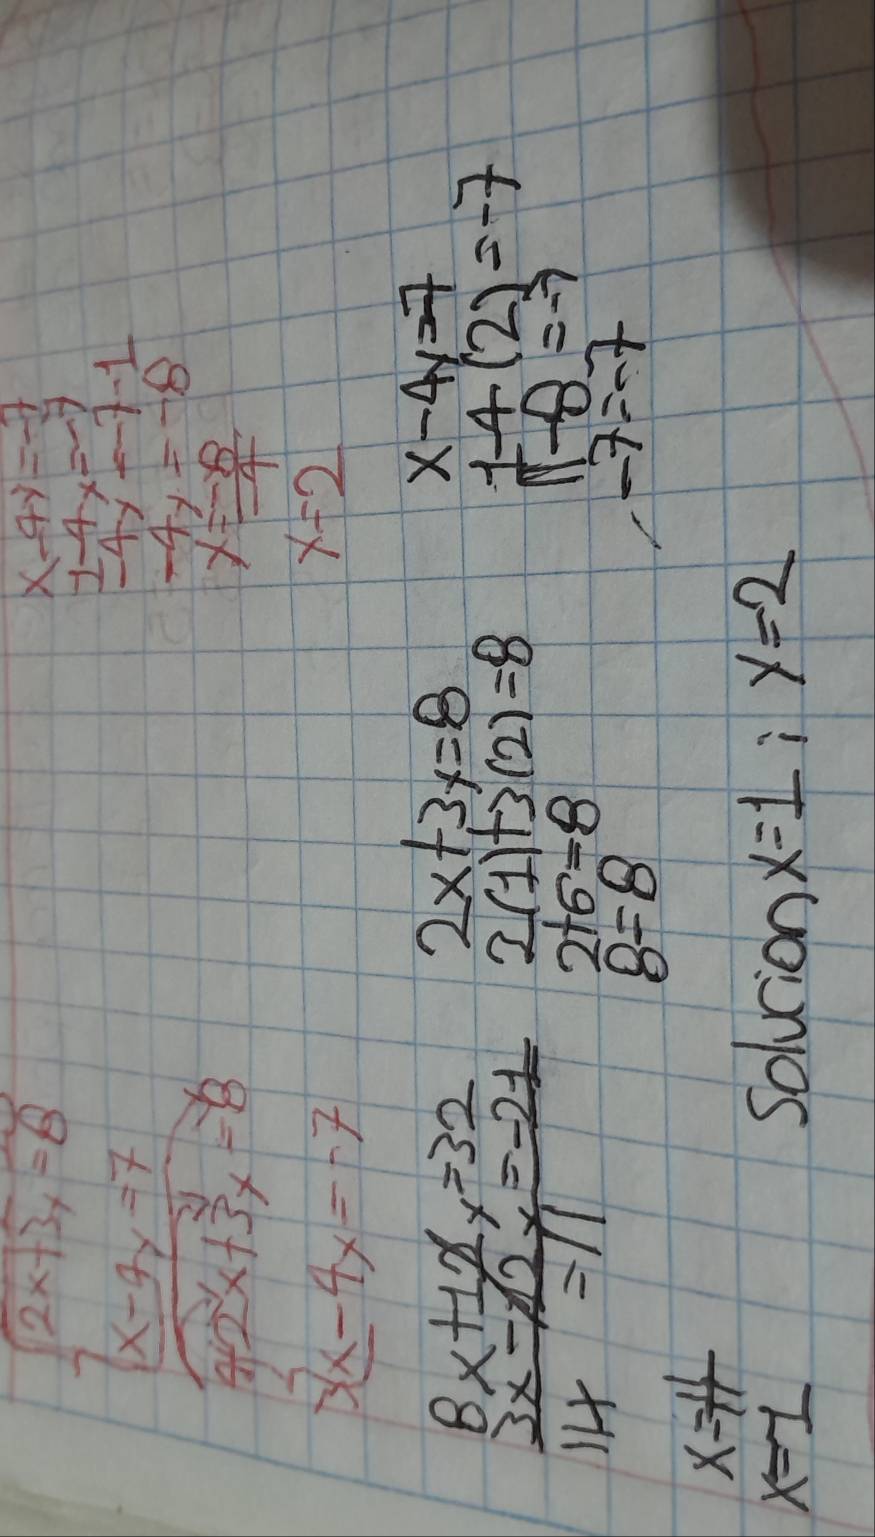 2x+3y=8
x-4y=7
4 2x+3y=8
3 x-4y=-7
x-4y=-7
1-4y=-7
-4y=-7-1
-4y=-8
y=-8
-4
y=2
8x+12y=32
3x-12y=-21
11x =11
x=11
x=1
2x+3y=8
2(1)+3(2)=8
2+6=8
8=8
x-4y=7
1-4(2)=-7
1-8=-7
-7=-7
Solucion x=1; y=2